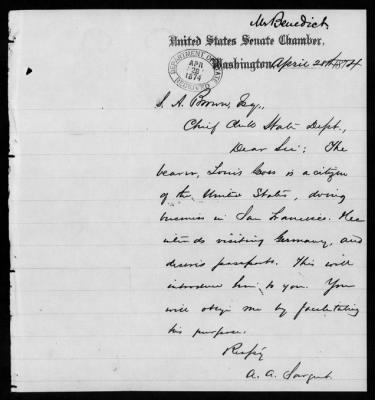 Mr Benedict
United States Senate Chamber,
DEPARTMENT OF STATE
APR
28
1874
RECEIVED
Washington, April 28th 1874
S. A. Brown, Esq.,
Chief Clk State Dept.,
Dear Sir: The
bearer, Louis is a citizen
of the United States, doing
business in San Francisco. He
intends visiting Germany, and
desires passports. This will
introduce him to you. You
will oblige me by facilitating
his purpose.
Respy
A. A. Sargent